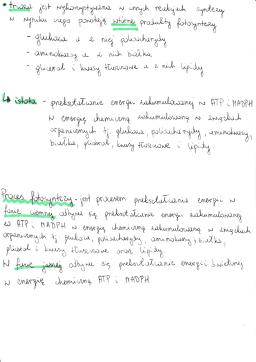 • trioza jest wykorzystywana w innych reakcjach syntezy
w wyniku czego powstają wtórne produkty fotosyntezy
- glukoza a z niej polisacharydy
- aminokwasy a z nich białka
- glicerol i kwasy tłuszczowe a z nich lipidy
↳ istota - przekształcanie energii zakumulowanej w ATP i NADPH
w energię chemiczną zakumulowaną w związkach
organicznych tj. glukoza, polisacharydy, aminokwasy,
białka, glicerol, kwasy tłuszczowe i lipidy
Proces fotosyntezy - jest procesem przekształcania energii w
fazie ciemnej odbywa się przekształcanie energii zakumulowanej
w ATP i NADPH w energię chemiczną zakumulowaną w związkach
organicznych tj. glukoza, polisacharydy, aminokwasy, białka,
glicerol i kwasy tłuszczowe oraz lipidy
W fazie jasnej odbywa się przekształcanie energii świetlnej
w energię chemiczną ATP i NADPH